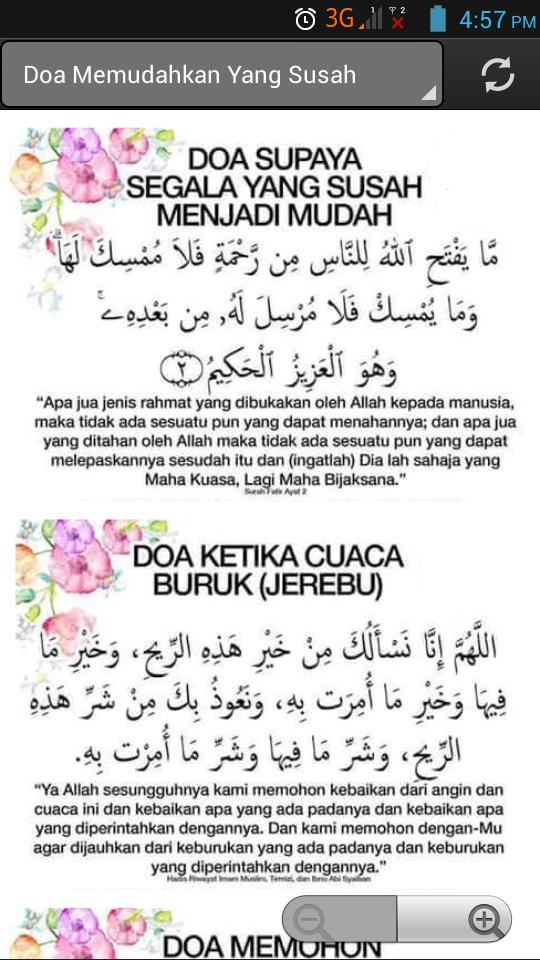 3G 1 2 4:57 PM
Doa Memudahkan Yang Susah
DOA SUPAYA
SEGALA YANG SUSAH
MENJADI MUDAH
مَّا يَفْتَحِ ٱللَّهُ لِلنَّاسِ مِن رَّحْمَةٍ فَلَا مُمْسِكَ لَهَا ۖ
وَمَا يُمْسِكْ فَلَا مُرْسِلَ لَهُۥ مِن بَعْدِهِۦ ۚ
وَهُوَ ٱلْعَزِيزُ ٱلْحَكِيمُ ﴿٢﴾
“Apa jua jenis rahmat yang dibukakan oleh Allah kepada manusia,
maka tidak ada sesuatu pun yang dapat menahannya; dan apa jua
yang ditahan oleh Allah maka tidak ada sesuatu pun yang dapat
melepaskannya sesudah itu dan (ingatlah) Dia lah sahaja yang
Maha Kuasa, Lagi Maha Bijaksana.”
Surah Fatir Ayat 2
DOA KETIKA CUACA
BURUK (JEREBU)
اللَّهُمَّ إِنَّا نَسْأَلُكَ مِنْ خَيْرِ هَذِهِ الرِّيحِ، وَخَيْرِ مَا
فِيهَا وَخَيْرِ مَا أُمِرَت بِهِ، وَنَعُوذُ بِكَ مِنْ شَرِّ هَذِهِ
الرِّيحِ، وَشَرِّ مَا فِيهَا وَشَرِّ مَا أُمِرْت بِهِ.
“Ya Allah sesungguhnya kami memohon kebaikan dari angin dan
cuaca ini dan kebaikan apa yang ada padanya dan kebaikan apa
yang diperintahkan dengannya. Dan kami memohon dengan-Mu
agar dijauhkan dari keburukan yang ada padanya dan keburukan
yang diperintahkan dengannya.”
Hadis Riwayat Imam Muslim, Termizi, dan Ibnu Abi Syaiban
DOA MEMOHON